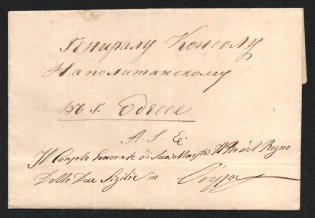 Генералу Консолу
Наполитанскому
въ г. Одессе
A. S. E.
Il Console Generale di Sua Maestà il Re del Regno
Delle Due Sicilie in Odessa